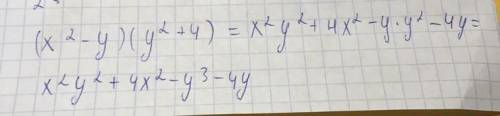 (x²-y)(y²+4) = x²y²+4x²-y·y²-4y=
x²y²+4x²-y³-4y